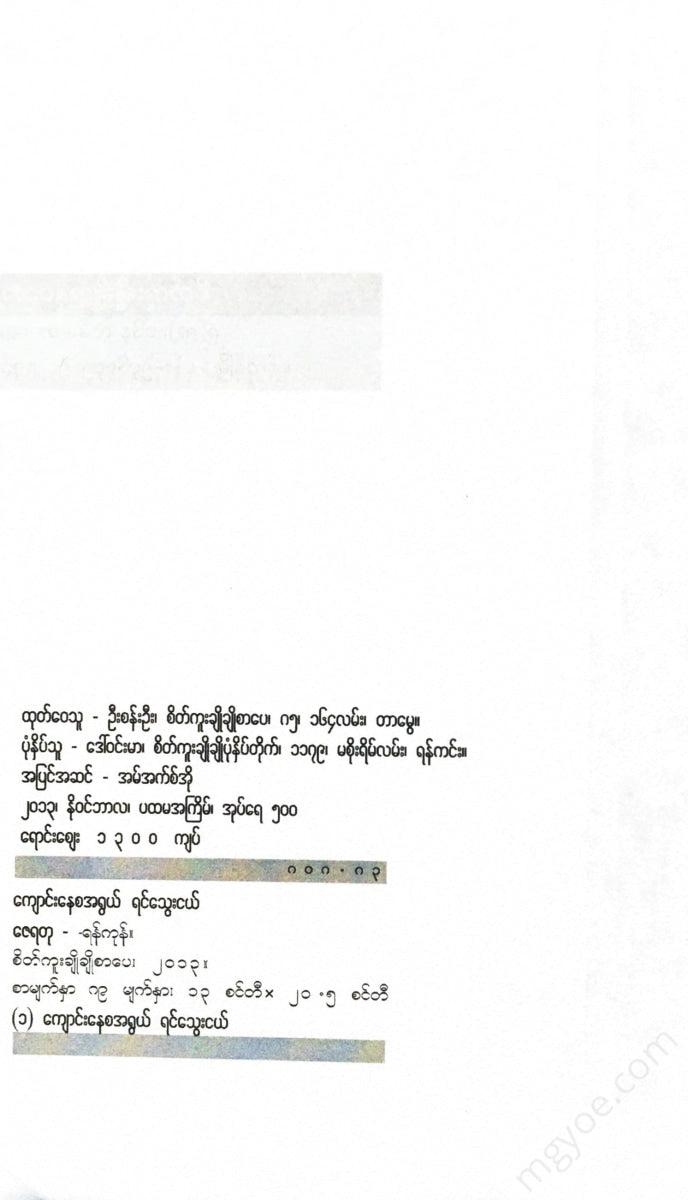 ထုတ်ဝေသူ - ဦးစန်းဦး၊ စိတ်ကူးချိုချိုစာပေ၊ ဂ၅၊ ၁၆၄လမ်း၊ တာမွေ။
ပုံနှိပ်သူ - ဒေါ်ဝင်းမာ၊ စိတ်ကူးချိုချိုပုံနှိပ်တိုက်၊ ၁၁၇၉၊ မစိုးရိမ်လမ်း၊ ရန်ကင်း။
အပြင်အဆင် - အမ်အက်စ်အို
၂၀၁၃၊ နိုဝင်ဘာလ၊ ပထမအကြိမ်၊ အုပ်ရေ ၅၀၀
ရောင်းဈေး ၁ ၃ ၀ ၀ ကျပ်
၈ ၀ ၈ . ၈ ၃
ကျောင်းနေစအရွယ် ရင်သွေးငယ်
ဇေရတု - -ရန်ကုန်။
စိတ်ကူးချိုချိုစာပေ၊ ၂၀၁၃။
စာမျက်နှာ ၈၉ မျက်နှာ၊ ၁၃ စင်တီ× ၂၀ .၅ စင်တီ
(၁) ကျောင်းနေစအရွယ် ရင်သွေးငယ်
mgyoe.com